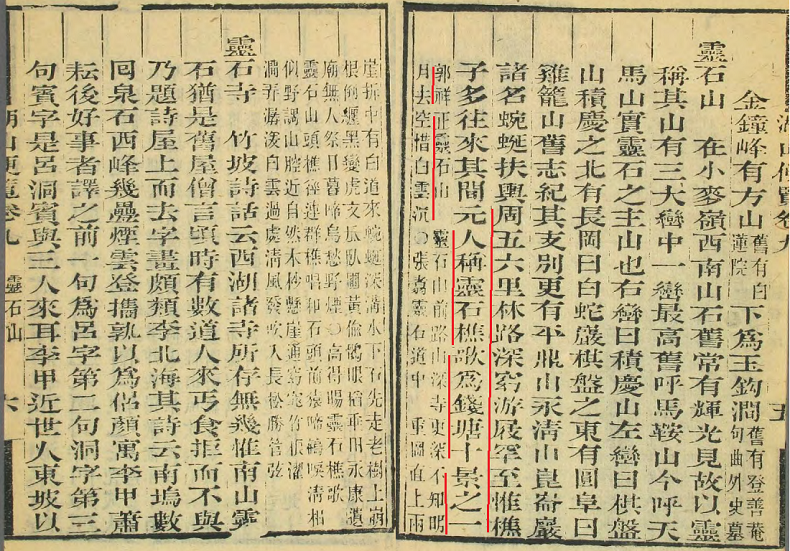 湖山便覽卷九 五
金鐘峰有方山舊有白蓮院下為玉鉤澗舊有登善菴句曲外史墓
靈石山 在小麥嶺西南山石舊常有輝光見故以靈
稱其山有三大巒中一巒最高舊呼馬鞍山今呼天
馬山實靈石之主山也右巒曰積慶山左巒曰棋盤
山積慶之北有長岡曰白蛇巖棋盤之東有圓阜曰
雞籠山舊志紀其支別更有平鼎山永清山崑崙巖
諸名蜿蜒扶輿周五六里林路深窮游屐罕至惟樵
子多往來其間元人稱靈石樵歌為錢塘十景之一
郭祥正靈石山 靈石山前路山深寺更深不知明
月去空惜白雲沉○張翥靈石道中 重岡直上兩
崖拆中有白道來蜿蜒清水下石先走老樹上崩
根倒纏黑變虎文瓜臥圃黃偷眼垂田永康遺
廟無人祭日暮啼烏愁野煙○高得暘靈石樵歌
靈石山頭樵徑連群樵唱和石頭前猿啼鶴唳清相
似野調山腔近自然木杪懸崖通窈窕竹根濯
澗弄潺湲白雲過處清風發吹入長松勝管弦
靈石寺 竹坡詩話云西湖諸寺所存無幾惟南山靈
石猶是舊屋僧言頃時有數道人來丐食拒而不與
乃題詩屋上而去字畫頗類李北海其詩云南塢數
回泉石西峰幾疊煙雲登攜孰以為侶顏寓李甲蕭
耘後好事者譯之前一句為呂字第二句洞字第三
句賓字是呂洞賓與三人來耳李甲近世人東坡以
湖山便覽卷九 靈石山 六